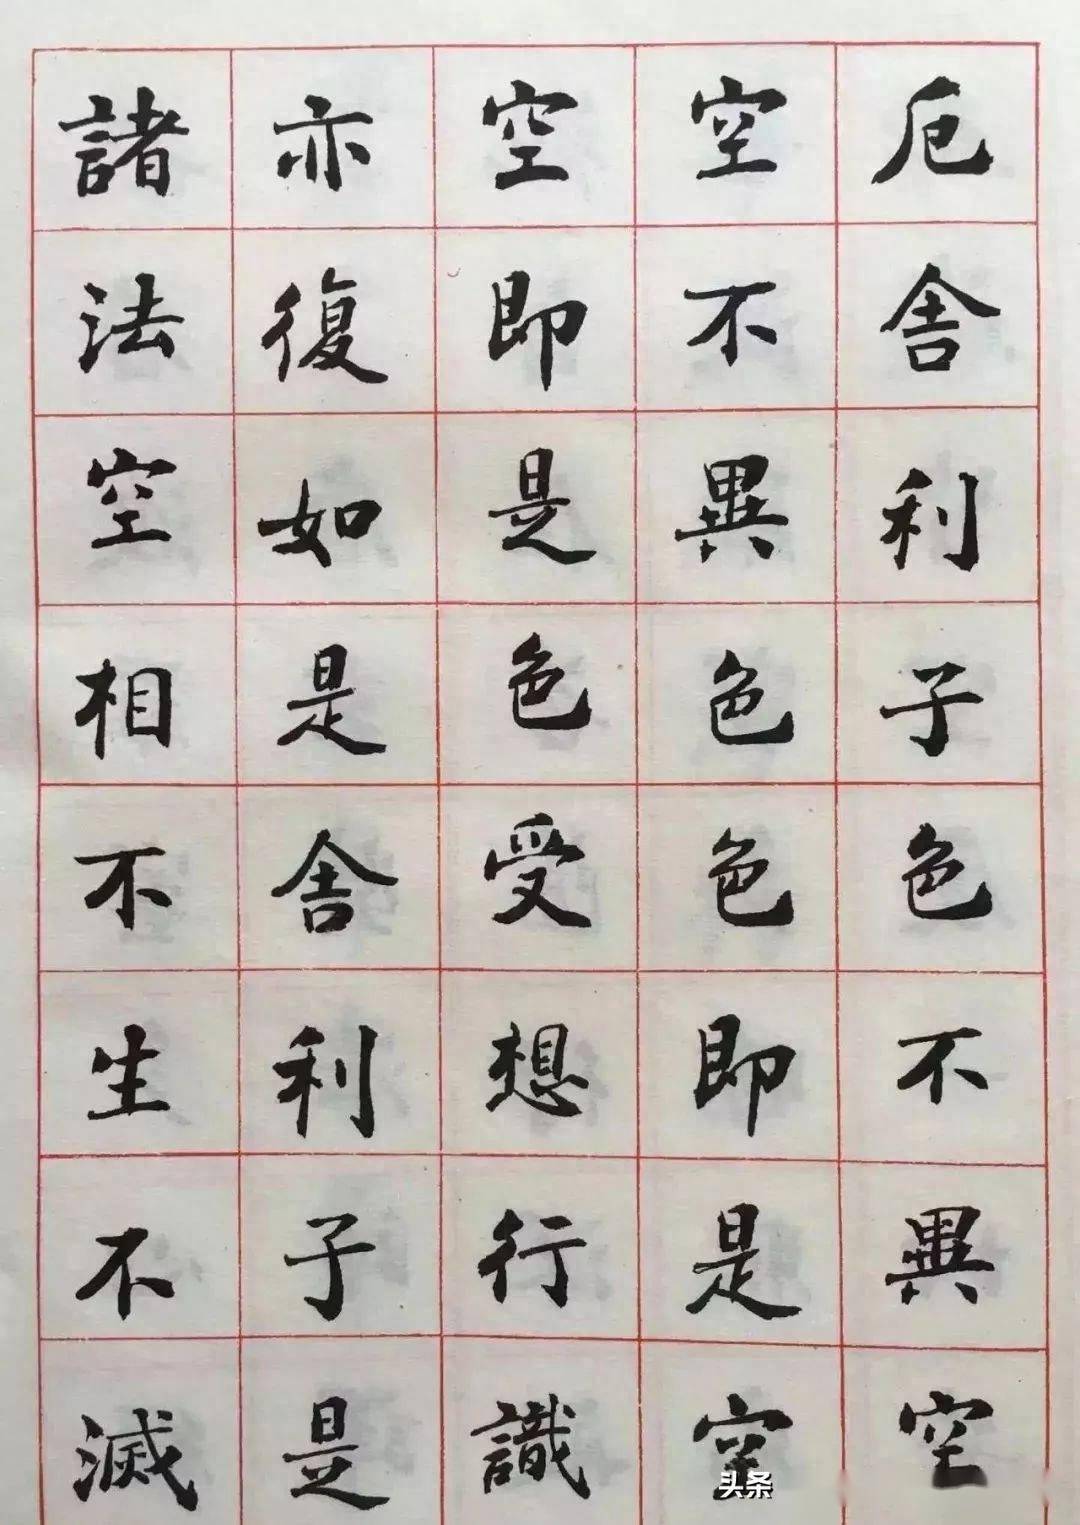 厄舍利子色不異空
空不異色色即是空
空即是色受想行識
亦復如是舍利子是
諸法空相不生不滅
头条